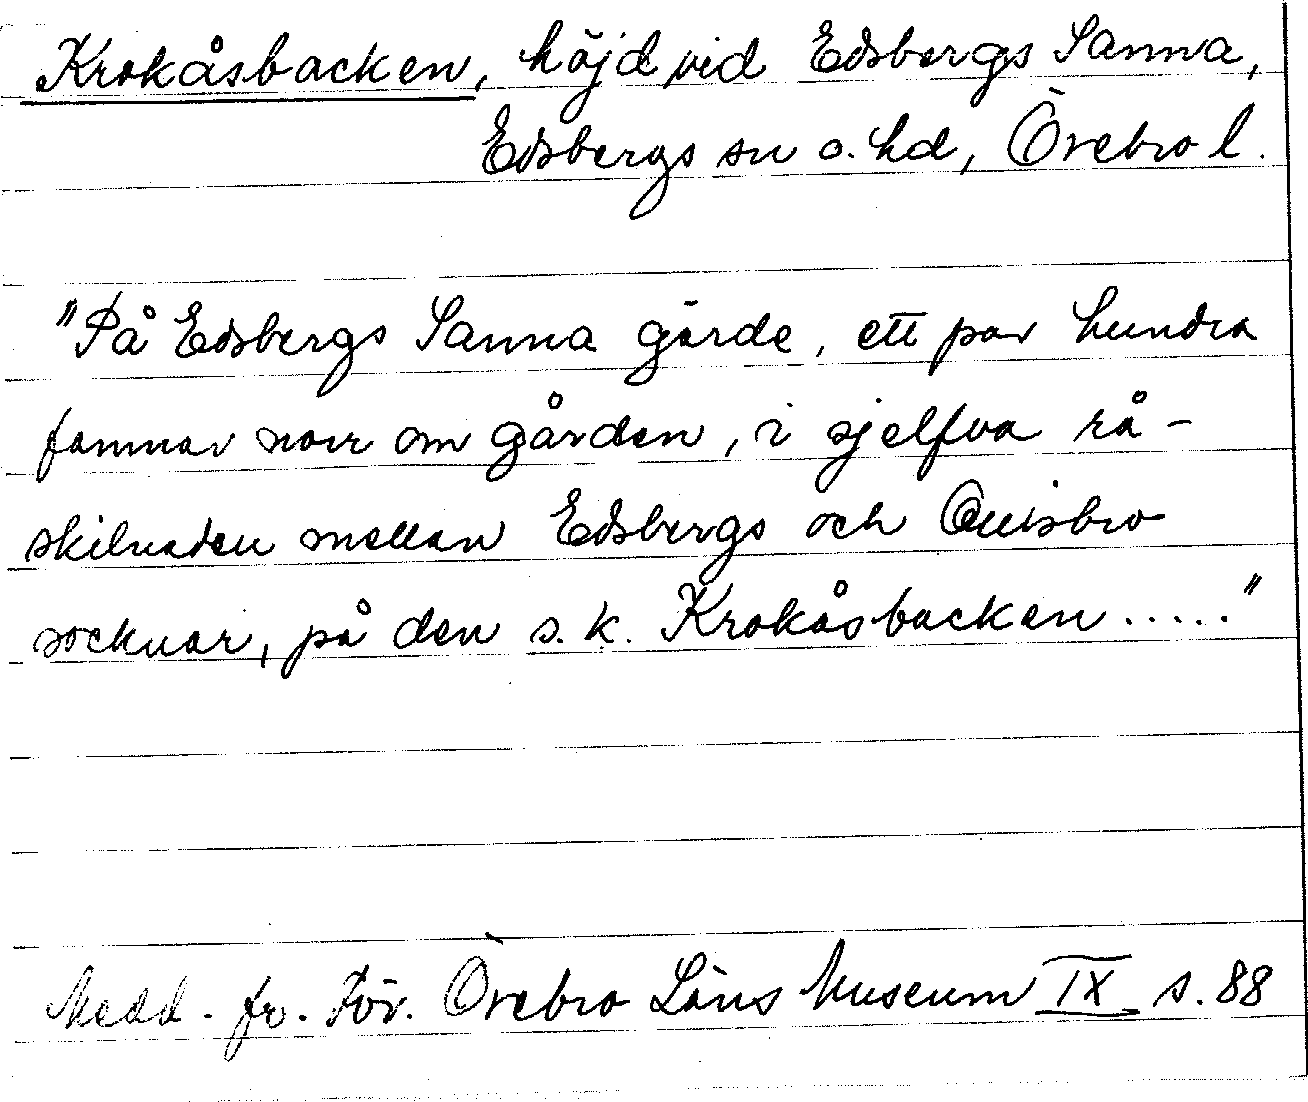 Krokåsbacken, höjd vid Edsbergs Sanna,
Edsbergs sn o. hd, Örebro l.
"På Edsbergs Sanna gärde, ett par hundra
famnar norr om gården, i sjelfva rå-
skilnaden mellan Edsbergs och Quisbro
socknar, på den s.k. Krokåsbacken....."
Medd. fr. För. Örebro Läns Museum IX s. 88